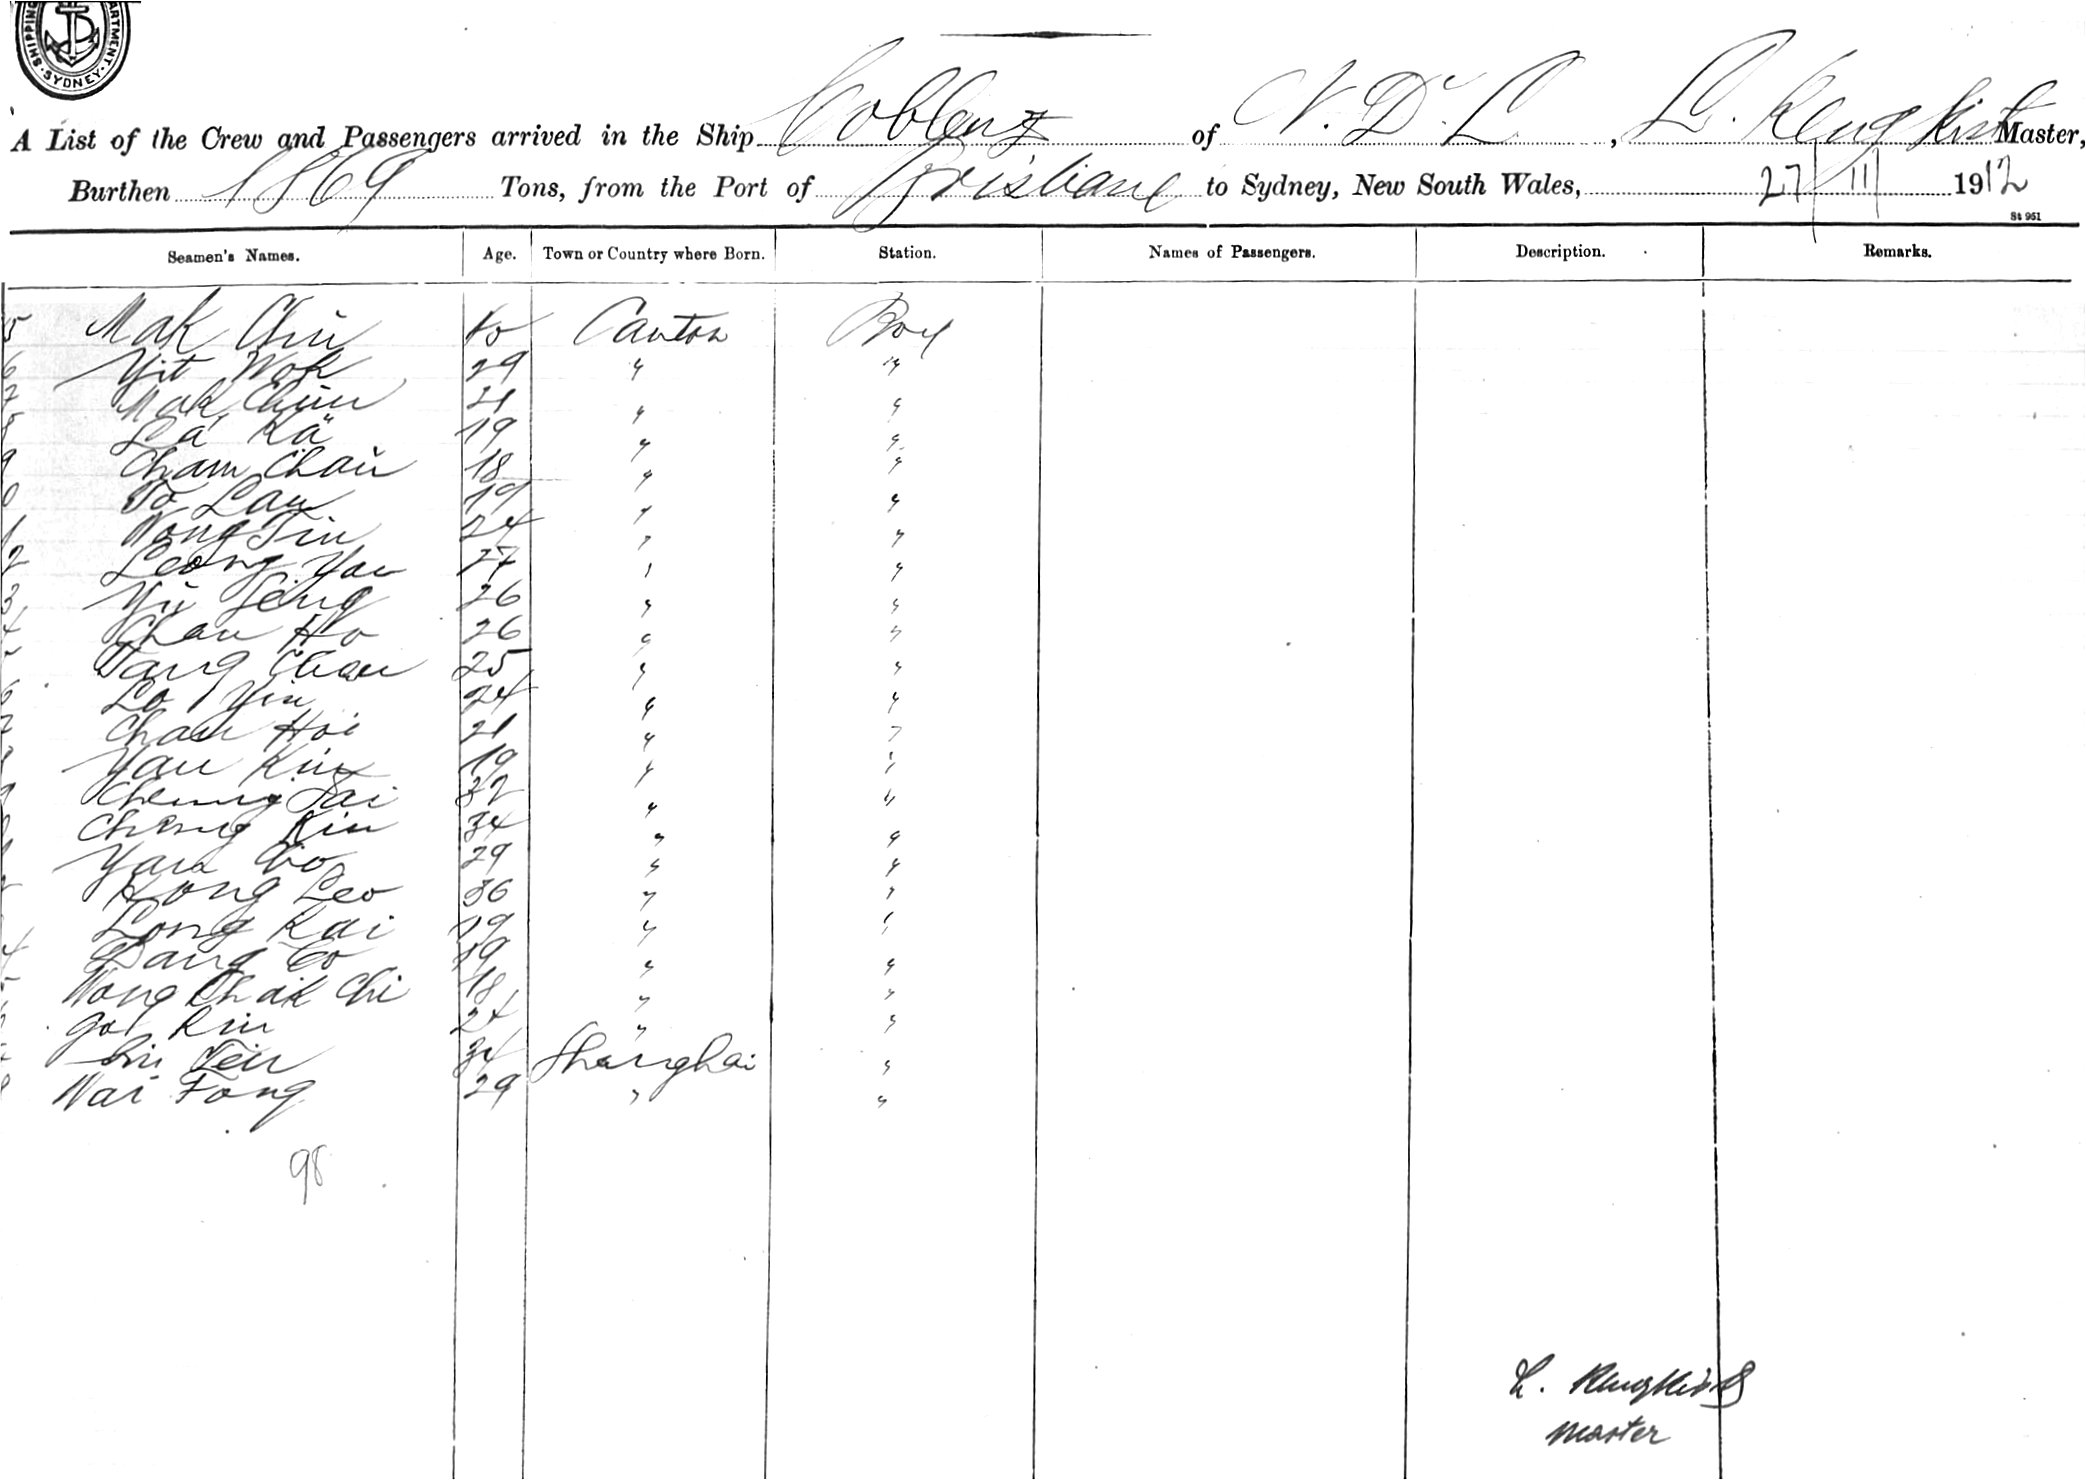 SHIPPING DEPARTMENT. SYDNEY.
A List of the Crew and Passengers arrived in the Ship Coblenz of N. D. L., L. Rengkist Master,
Burthen 1869 Tons, from the Port of Brisbane to Sydney, New South Wales, 27/11/ 1912
St 951
Seamen's Names. Age. Town or Country where Born. Station. Names of Passengers. Description. Remarks.
5 Mak Chiu Canton Boy
6 Yit Wok 29 " "
7 Mak Chun 21 " "
8 La Kā 19 " "
9 Cham Chaŭ 18 " "
0 To Lau 19 " "
1 Wong Tin 24 " "
2 Leong Yau 27 " "
3 Yü Seng 26 " "
4 Chau Ho 26 " "
5 Tang Chau 25 " "
6 Lo Yin 24 " "
7 Chau Hoi 21 " "
Yau Kin 19 " "
9 Cheung Tai 32 " "
0 Cheng Kin 34 " "
Yau Co 29 " "
Kong Leo 36 " "
Long Kai 19 " "
4 Dang Co 19 " "
5 Wong Chak Chi 18 " "
Go Kin 24 " "
34 Shanghai "
Wai Fong 29 " "
98
L. Rengkist
Master